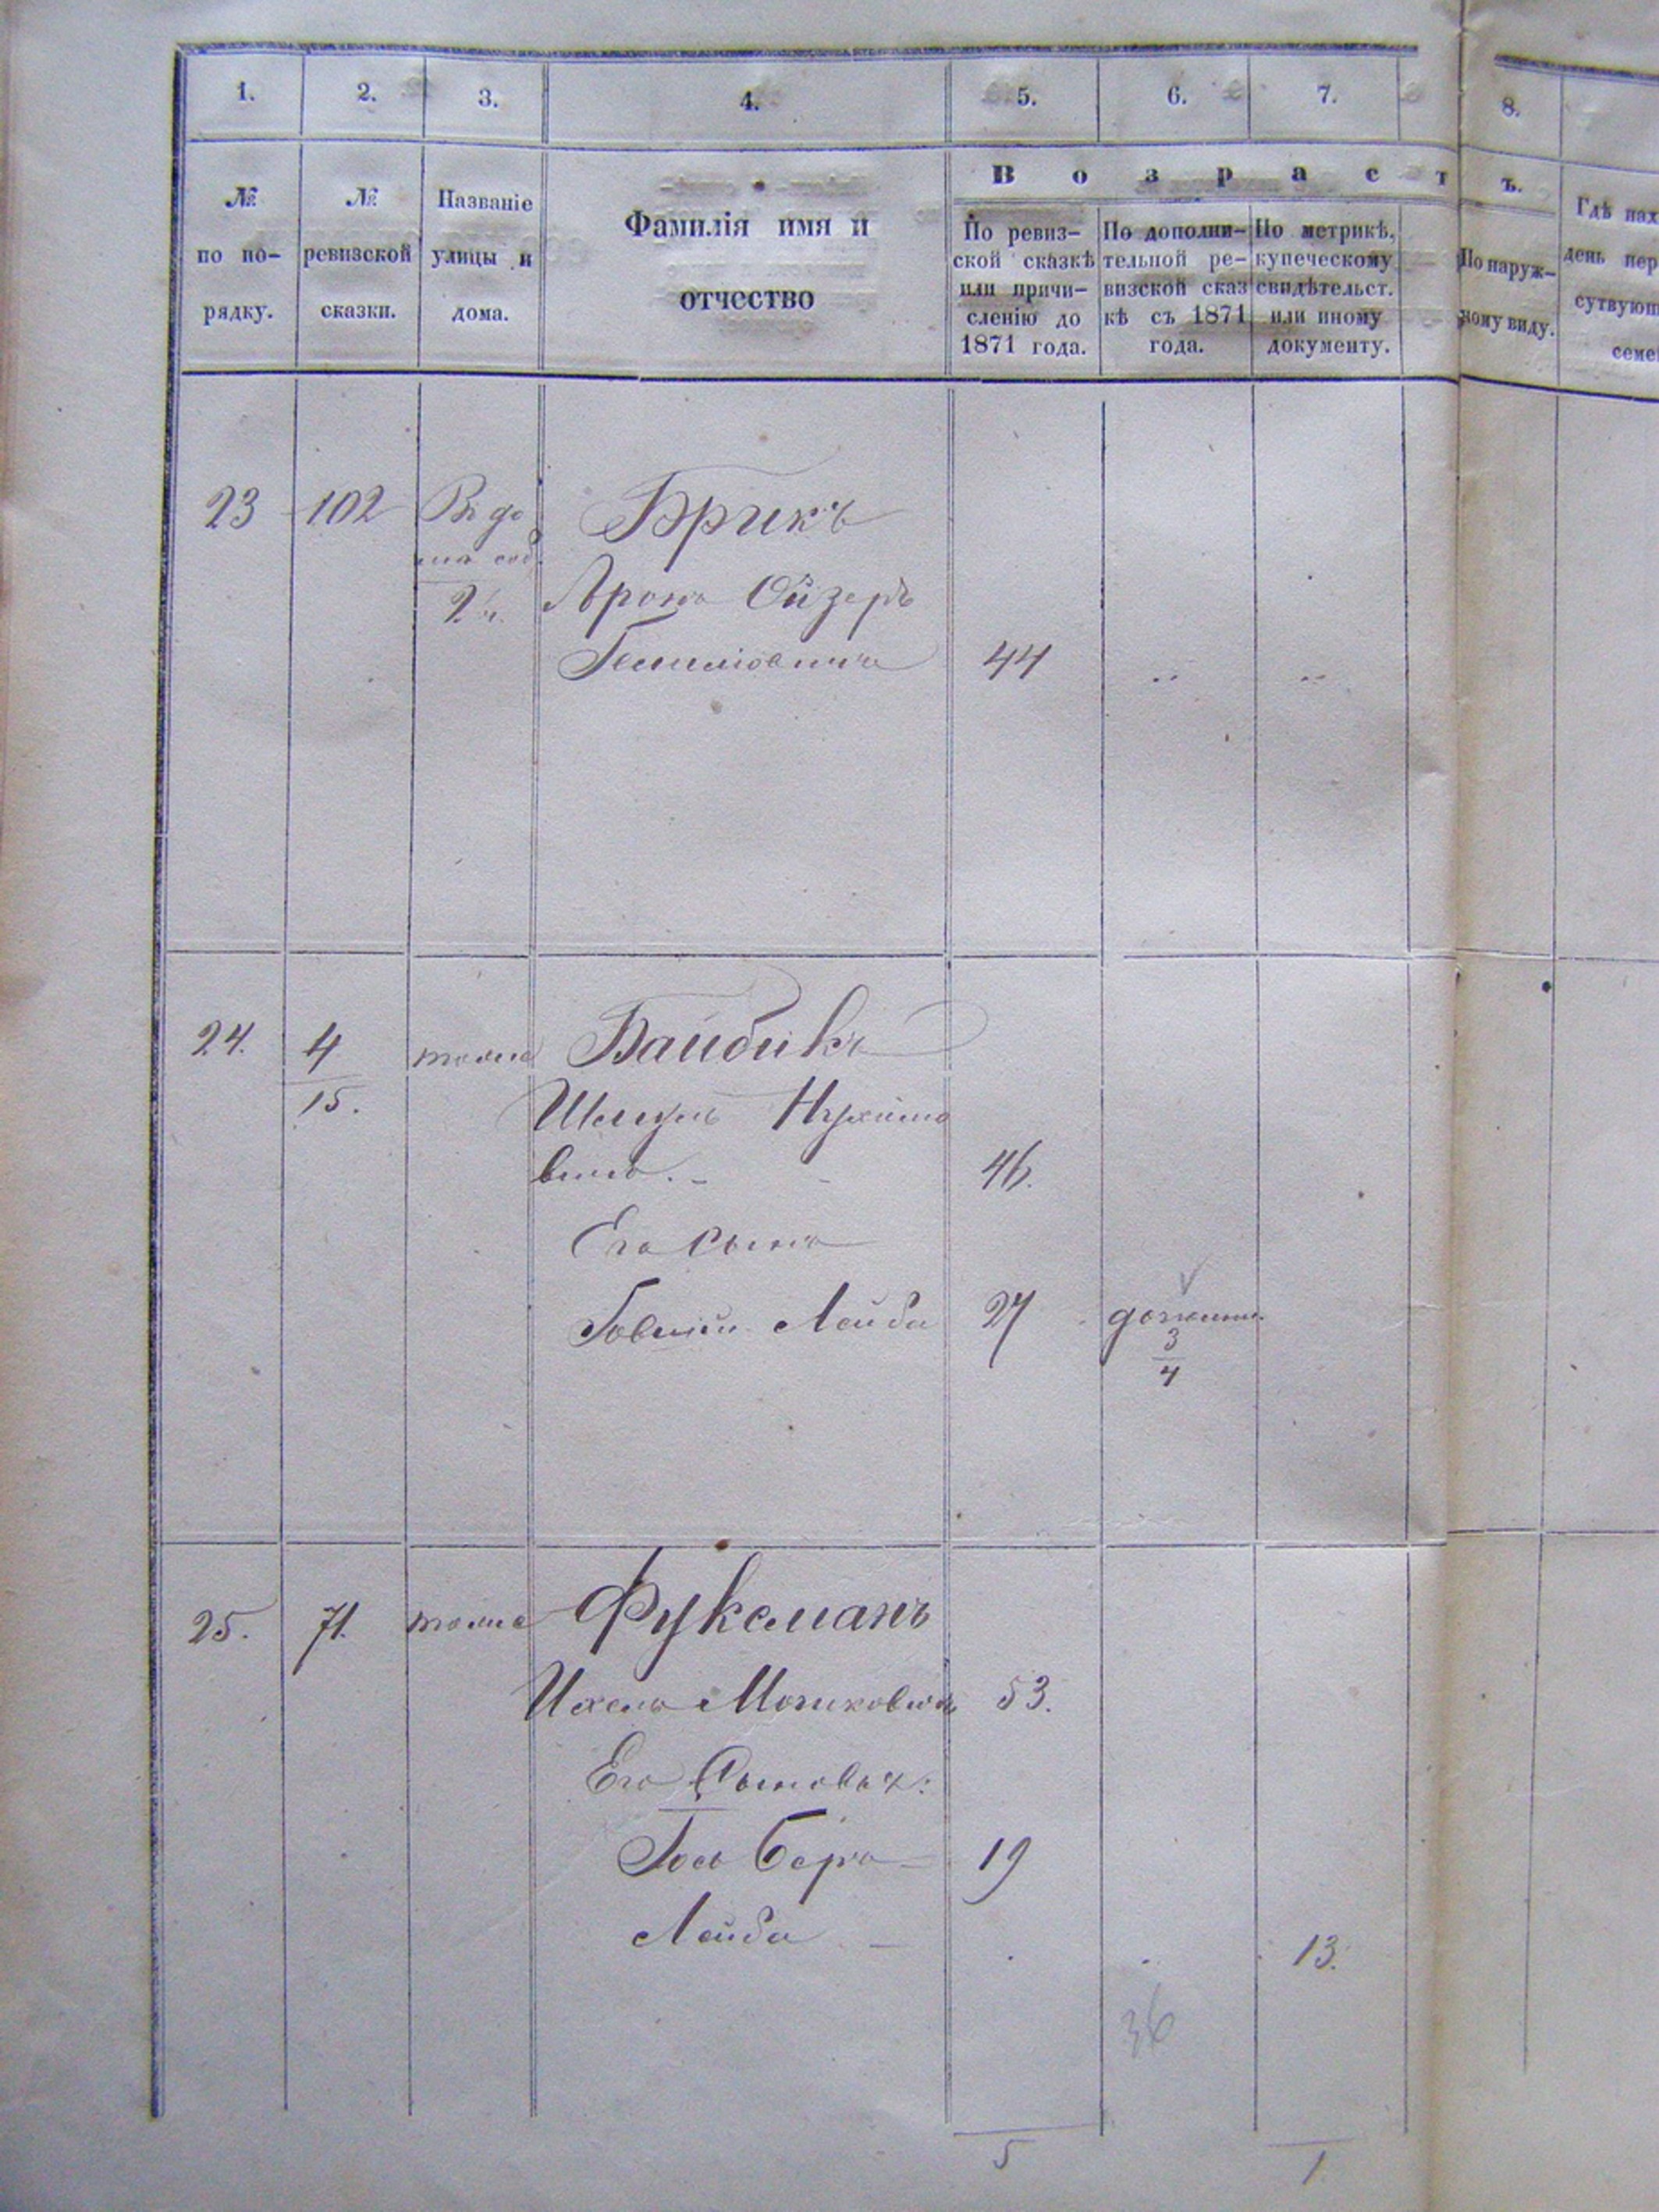 1. 2. 3. 4. 5. 6. 7. 8.
№ по по-рядку.
№ ревизской сказки.
Названіе улицы и дома.
Фамилія имя и
отчество
В о з р а с т ъ.
По ревиз-
ской сказкѣ
или причи-
сленію до
1871 года.
По дополни-
тельной ре-
визской сказ
кѣ съ 1871
года.
По метрикѣ,
купеческому
свидѣтельст.
или иному
документу.
По наруж-
ному виду.
Гдѣ нах
день пер
сутвующ
семе
23 102 Въ до Брикъ
ма соб.
2 ч. Аронъ Ойзеръ
44
24. 4 тоже Байбикъ
15. Шмуль Нухимо
вичъ. 46.
Его сынъ
Лейба 27
3
4
25. 71. тоже Фуксманъ
Ихель Мошковичъ 53.
Его Сыновья:
Іось Беръ 19
Лейба 13.
36
5 1